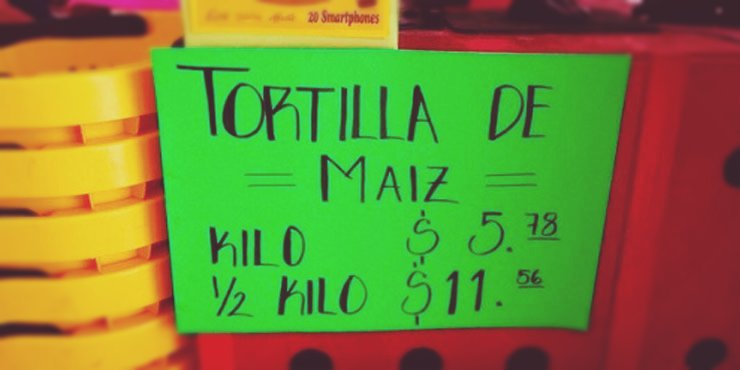 20 Smartphones
TORTILLA DE
= MAIZ =
KILO $ 5.78
1/2 KILO $11.56